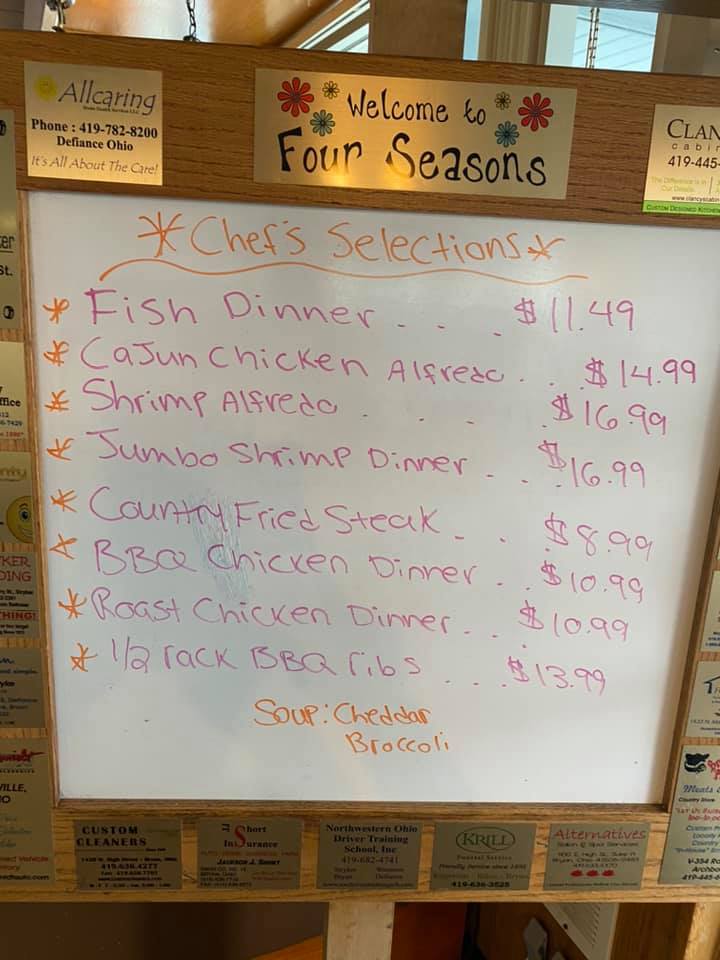 Allcaring
Phone : 419-782-8200
Defiance Ohio
It's All About The Care!
Welcome to
Four Seasons
CLAN
cabin
419-445-
The Difference is in
Our Details
www.clancyscabin
CUSTOM DESIGNED KITCHEN
*Chef's Selections*
* Fish Dinner . . . $11.49
* Cajun Chicken Alfredo . . $14.99
* Shrimp Alfredo . . . $16.99
* Jumbo Shrimp Dinner . . $16.99
* Country Fried Steak . . $8.99
* BBQ Chicken Dinner . . $10.99
* Roast Chicken Dinner . . $10.99
* 1/2 rack BBQ ribs . . . $13.99
Soup: Cheddar
Broccoli
er
St.
ffice
KER
DING
THING!
VILLE,
IO
CUSTOM
CLEANERS
419.636.4277
Short
InSurance
JACKSON J. SHORT
Northwestern Ohio
Driver Training
School, Inc
419-682-4741
Stryker
Bryan
Defiance
KRILL
Funeral Service
419-636-3525
Alternatives
Salon & Spa Services
Meats &
Country Store
V-354 Ro
Archbo
419-445-